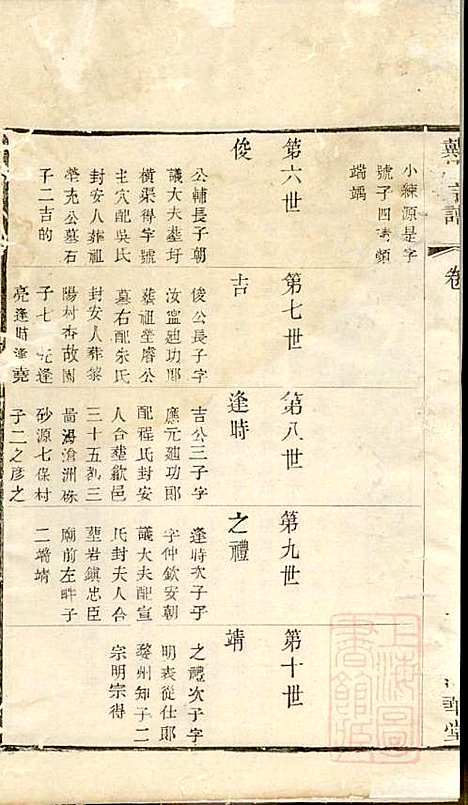 卷
小練源是字
號子四時頻
端䫇
第六世
俊
公輔長子朝
議大夫塟圩
横渠得字號
主穴配吳氏
封安人葬祖
塋充公墓右
子二吉的
第七世
吉
俊公長子字
汝寍廸功郎
葬祖塋睿公
墓右配朱氏
封安人葬黎
陽村杏故園
子七 逢
亮逢時逢堯
第八世
逢時
吉公三子字
應元廸功郎
配程氏封安
人合塟歙邑
三十五都三
啚湖滄洲硃
砂源七保村
子二之彦之
第九世
之禮
逢時次子字
字仲欽安朝
議大夫配宣
氏封夫人合
塟岩鎮忠臣
廟前左畔子
二端靖
第十世
靖
之禮次子字
明表從仕郎
婺州知子二
宗明宗得
上海圖
書館藏